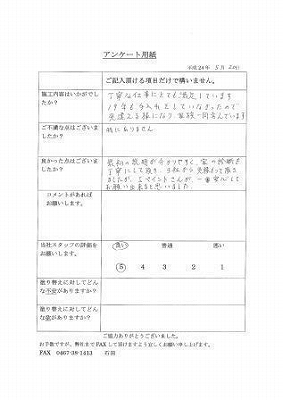 アンケート用紙
平成24年 5月
ご記入頂ける項目だけで構いません。
施工内容はいかがでし
たか？
丁寧な仕事にとても満足しています
19年も手入れをしていなかったので
見違える様になり 家族一同喜んでいます
ご不満な点はございま
したか？
特にありません
良かった点はございま
したか？
最初の説明が分かりやすく、家の診断も
丁寧にして頂き、3社から見積もって頂き
ましたが、ペイントさんが、一番安心して
お願い出来ると思いました。
コメントがあれば
お願いします。
当社スタッフの評価を
お願いします。
良い 普通 悪い
5 4 3 2 1
塗り替えに対してどん
な不安がありますか？
塗り替えに対してどん
な夢がありますか？
ご協力ありがとうございました。
お手数ですが、弊社までFAXして頂けますよう宜しくお願い申し上げます。
FAX 0467-38-1413 石田